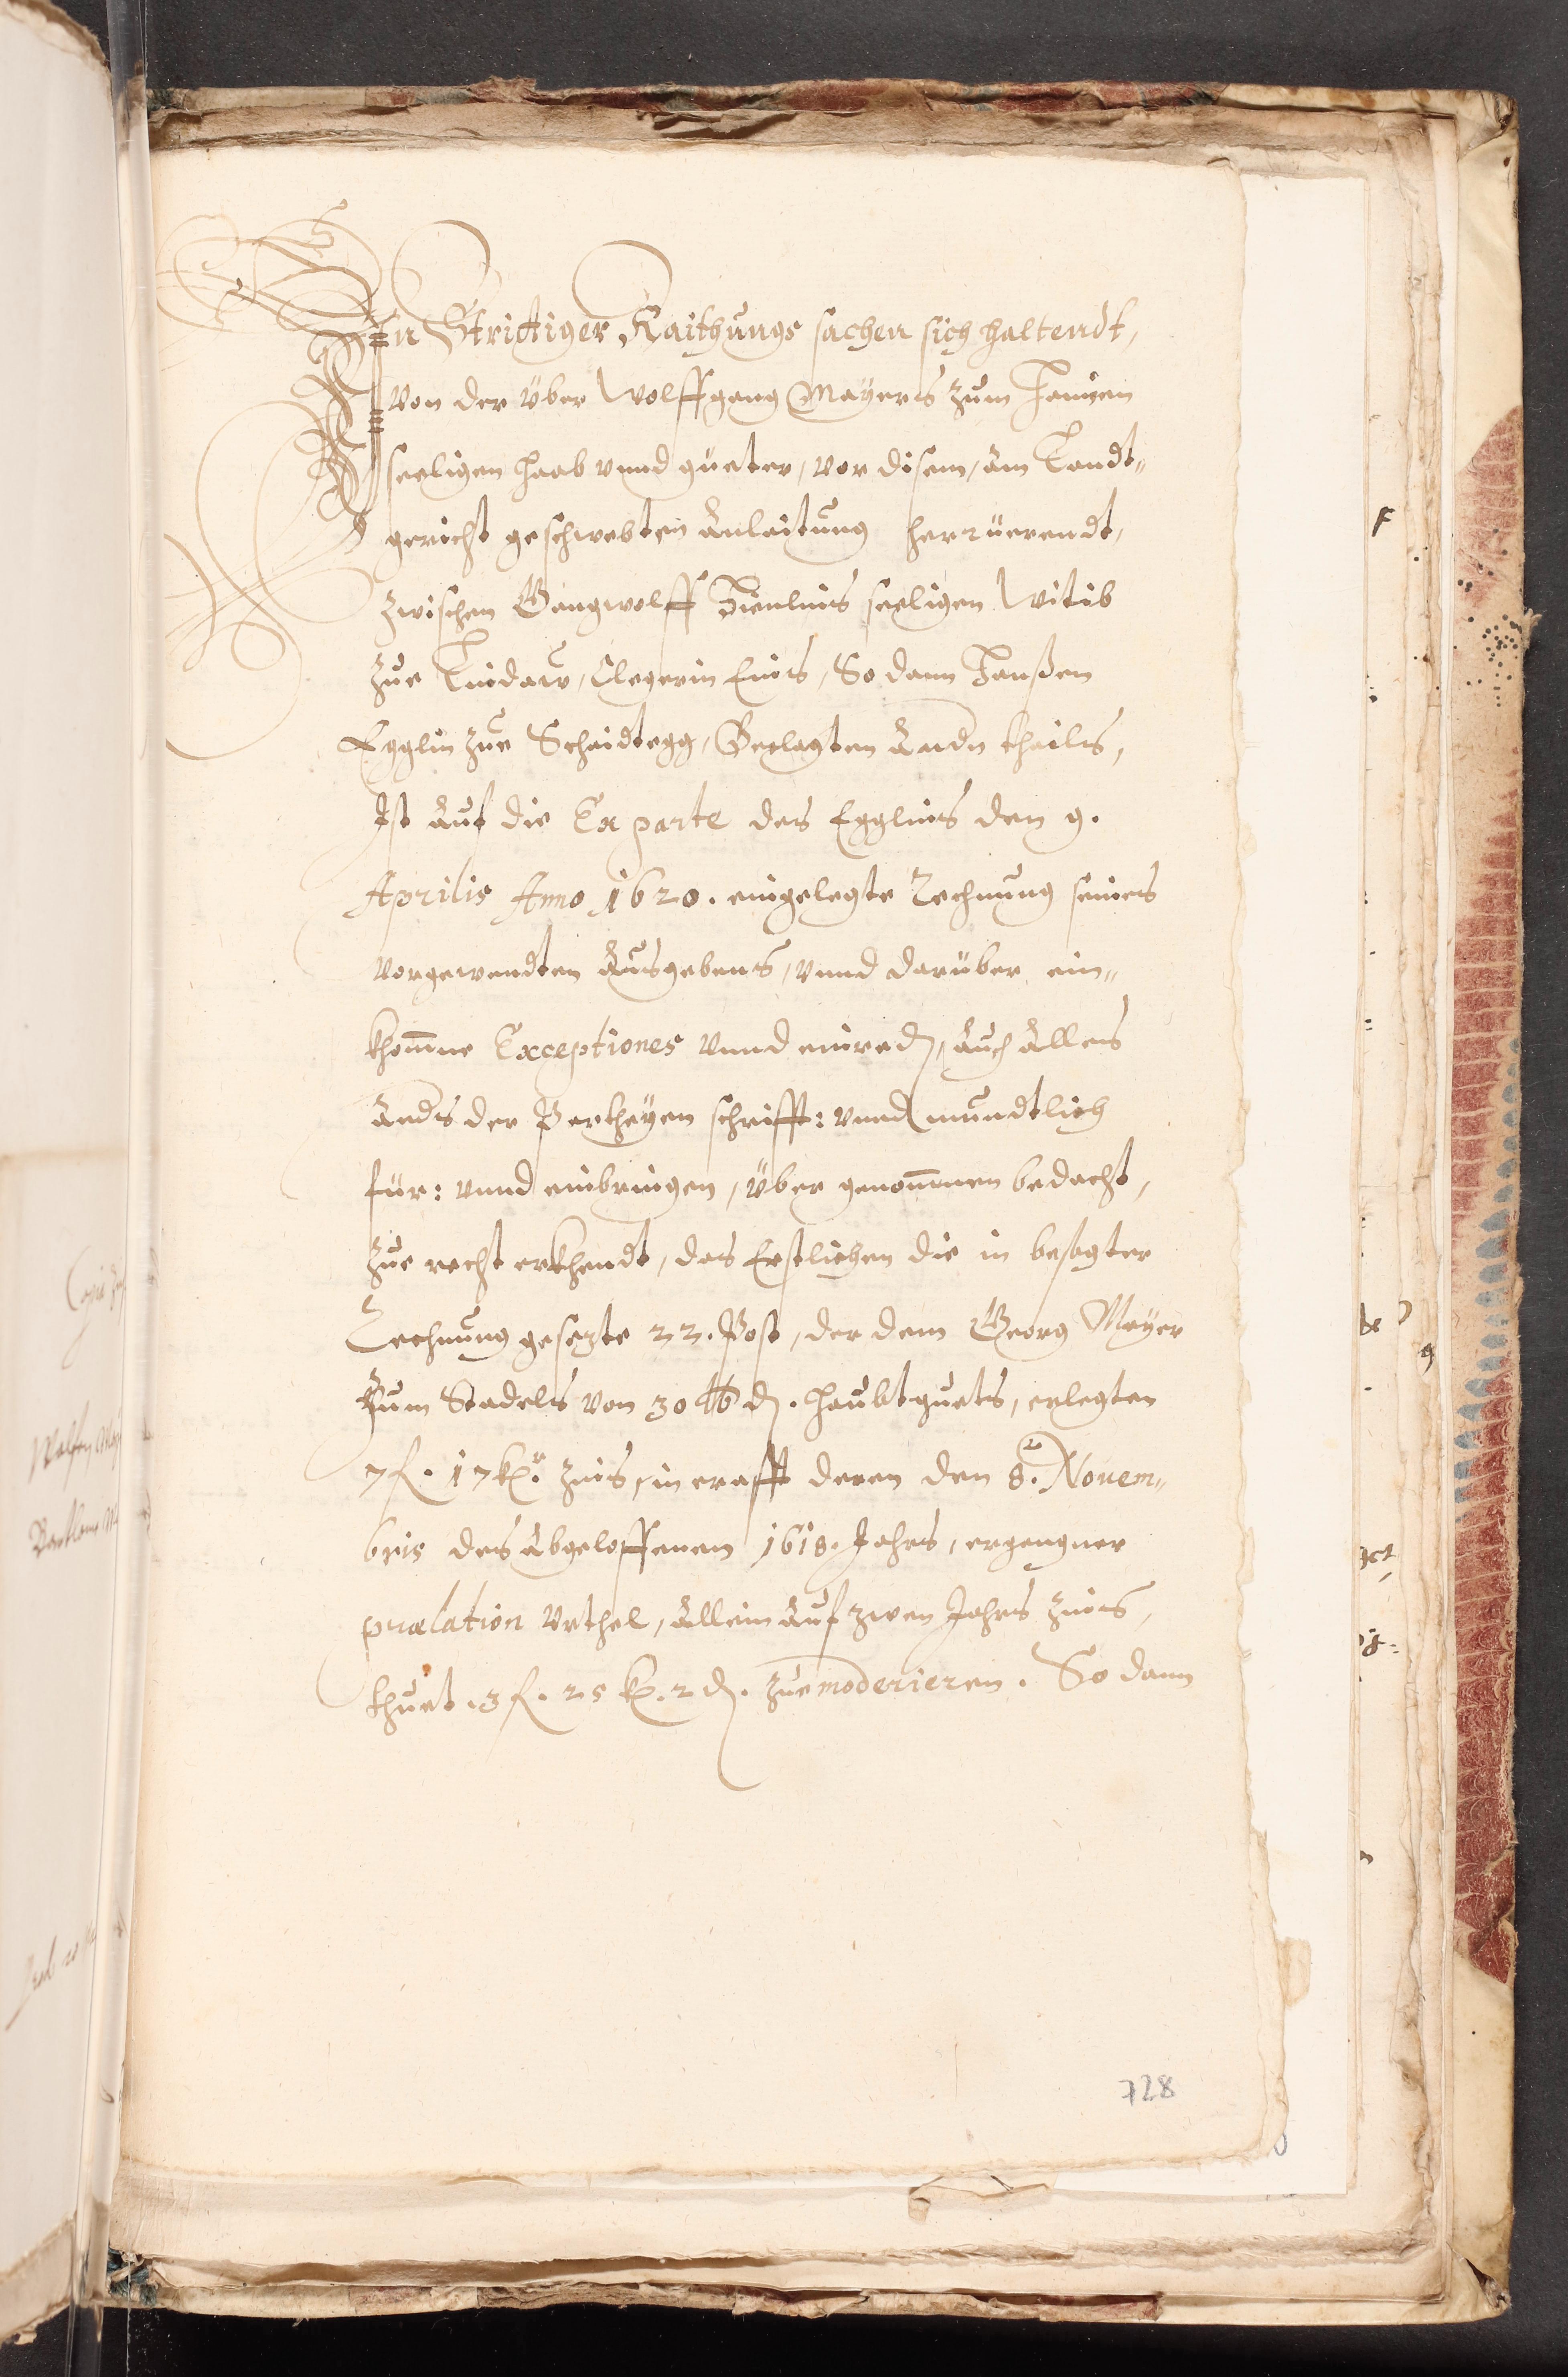 In Strittiger Raithungs sachen sich haltendt,
Von der über Wolffgang Mayers zum
seeligen haab vnnd güeter, vor disem, am Landt„
gericht geschwebten Anlaitung herrüerendt,
zwischen Gangwolff seeligen Witib
zue Lindaw, Clegerin Eins, So dann Hanßen
Egglin zue Scheidtegg, Beclagten Andn theils,
Ist auf die Ex parte des Egglins den 9.
Aprilis Anno 1620. eingelegte Rechnung seines
vorgewendten Ausgebens, vnnd darüber ein„
khom̄ne Exceptiones vnnd einreden, auch alles
anders der Partheyen schrifft: vnnd mündtlich
für: vnnd einbringen, über genom̄men bedacht,
zue recht erkhendt, das Erstlichen die in besagter
Rechnung gesezte 22. Post, der dem Georg Mayer
zum Stadels von 30 lb d. haubtguets, erlegten
7 fl. 17 kr. Zins, in crafft deren den 8. Nouem„
bris des abgeloffenen 1618. Jahrs, ergangner
prælation Vrthel, allein auf zwen Jahrs Zins,
thuet. 3 fl. 25 kr. 2 d. zue moderieren. So dann
728